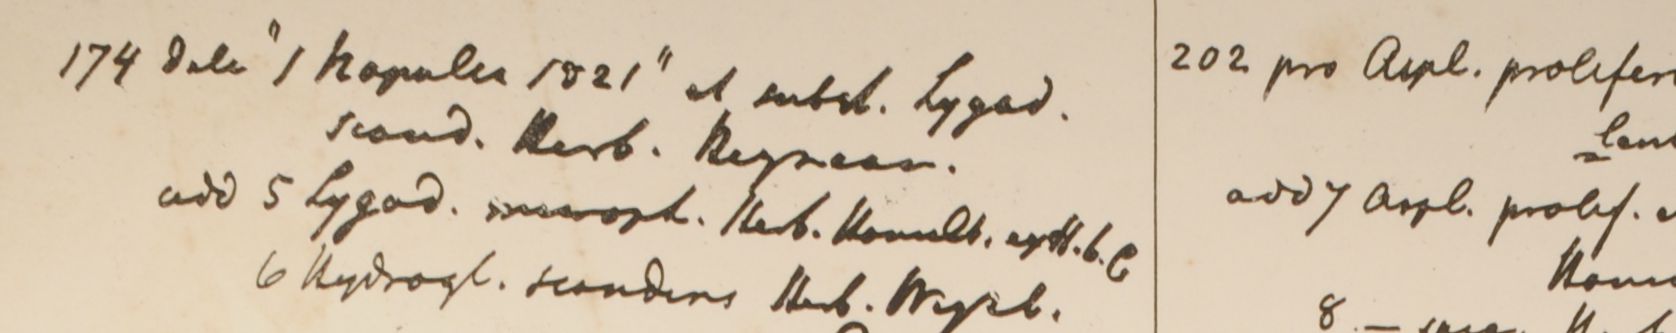 174 dele "1 Napalia 1821" et subst. Lygod.
scand. Herb. Heynean.
add 5 Lygod. microph. Herb. Hamilt. ex H.b.C
6 Hydrogl. scandens Herb. Wight.
202 pro Aspl. prolifer
add 7 Aspl. prolif.
Ham
8 —